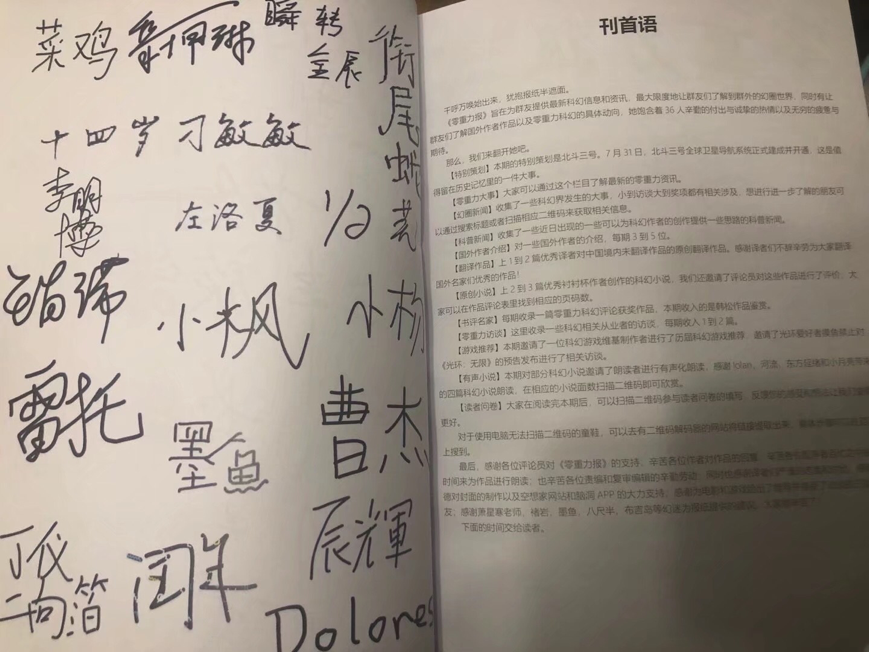 菜鸡
瞬转
金辰
衔尾蛇芒
十四岁
刁敏敏
李明博
左洛夏
1/2
小枫
小杨
雷托
墨鱼
曹杰
丁代
二向箔
闰年
辰輝
Dolores
刊首语
千呼万唤始出来，犹抱报纸半遮面。
《零重力报》旨在为群友提供最新科幻信息和资讯，最大限度地让群友们了解到群外的幻圈世界，同时有让
群友们了解国外作者作品以及零重力科幻的具体动向，她饱含着 36 人辛勤的付出与诚挚的热情以及无穷的疲惫与
期待。
那么，我们来翻开她吧。
【特别策划】本期的特别策划是北斗三号。7 月 31 日，北斗三号全球卫星导航系统正式建成并开通，这是值
得留在历史记忆里的一件大事。
【零重力大事】大家可以通过这个栏目了解最新的零重力资讯。
【幻圈新闻】收集了一些科幻界发生的大事，小到访谈大到奖项都有相关涉及，想进行进一步了解的朋友可
以通过搜索标题或者扫描相应二维码来获取相关信息。
【科普新闻】收集了一些近日出现的一些可以为科幻作者的创作提供一些思路的科普新闻。
【国外作者介绍】对一些国外作者的介绍，每期 3 到 5 位。
【翻译作品】上 1 到 2 篇优秀译者对中国境内未翻译作品的原创翻译作品。感谢译者们不辞辛劳为大家翻译
国外名家们优秀的作品！
【原创小说】上 2 到 3 篇优秀衬衬杯作者创作的科幻小说，我们还邀请了评论员对这些作品进行了评价，大
家可以在作品评论表里找到相应的页码数。
【书评名家】每期收录一篇零重力科幻评论获奖作品，本期收入的是韩松作品鉴赏。
【零重力访谈】这里收录一些科幻相关从业者的访谈，每期收入 1 到 2 篇。
【游戏推荐】本期邀请了一位科幻游戏维基制作者进行了历届科幻游戏推荐，邀请了光环爱好者重鱼禁止对
《光环：无限》的预告发布进行了相关访谈。
【有声小说】本期对部分科幻小说邀请了朗读者进行有声化朗读，感谢
的四篇科幻小说朗读，在相应的小说面数扫描二维码即可欣赏。
【读者问卷】大家在阅读完本期后，可以扫描二维码参与读者问卷的填写，
更好。
对于使用电脑无法扫描二维码的童鞋，可以去有二维码解码器的网站
上搜到。
最后，感谢各位评论员对《零重力报》的支持，辛苦各位作者对作品的
时间来为作品进行朗读，也辛苦各位责编和复审编辑的辛勤劳动，
德对封面的制作以及空想家网站和脑洞 APP 的大力支持，
友，感谢萧星寒老师、褚岩、墨鱼、八尺半、布吉岛等幻迷为
下面的时间交给读者。